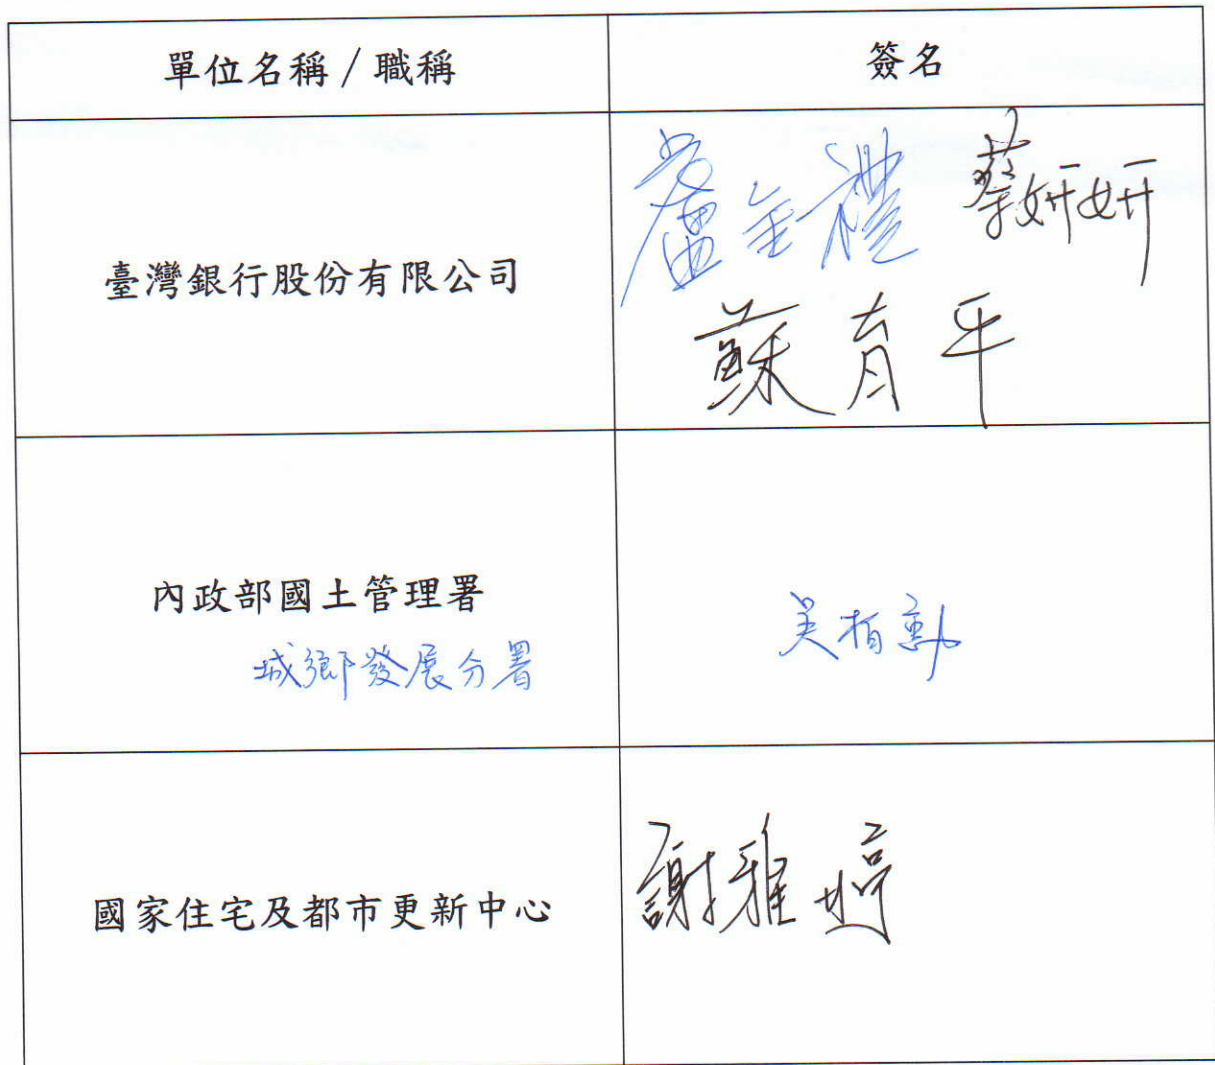 單位名稱/職稱
簽名
臺灣銀行股份有限公司
盧金禮 蔡妍妍
蘇育平
內政部國土管理署
城鄉發展分署
吳柏勳
國家住宅及都市更新中心
謝雅婷